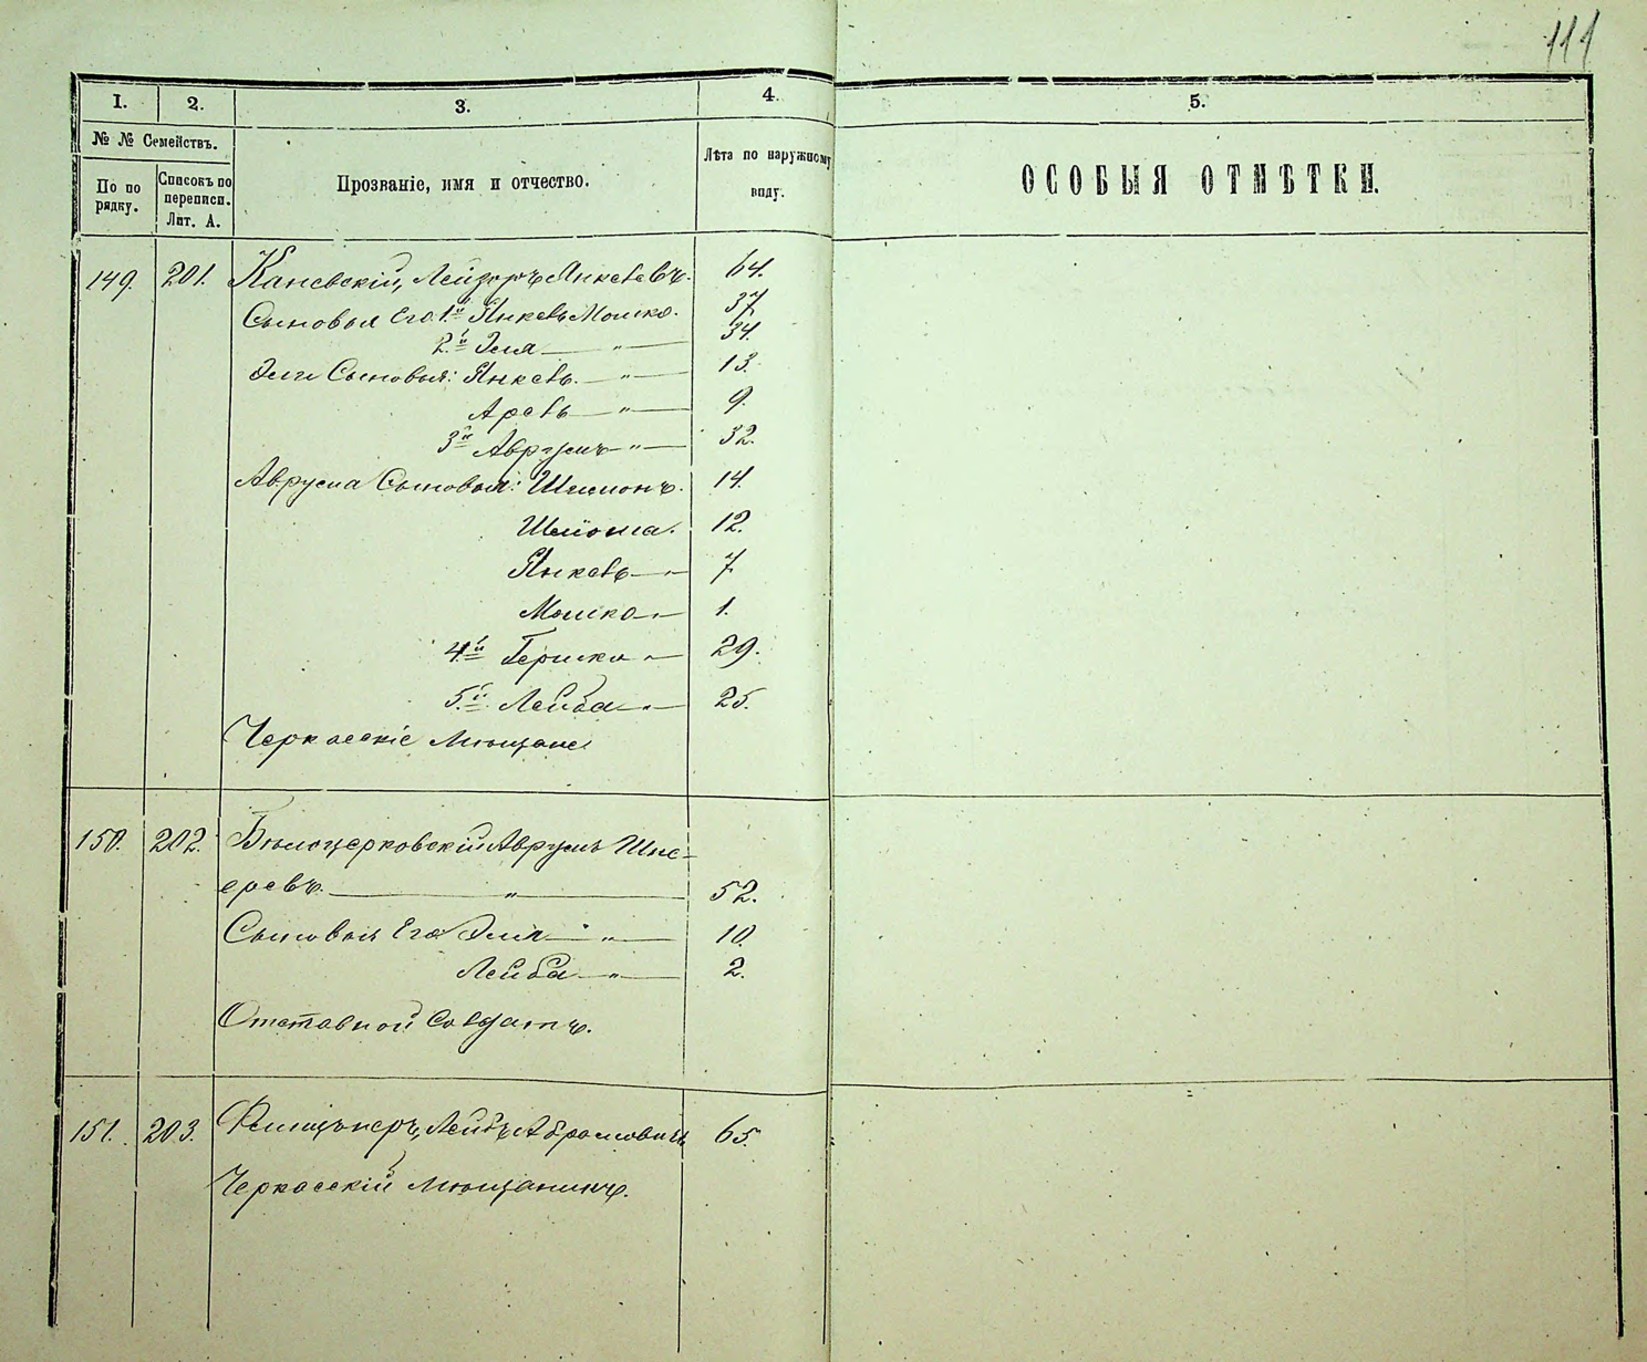 111
1. 2. 3. 4. 5.
№ № Семействъ.
По по рядку.
Списокъ по переписи. Лит. А.
Прозваніе, имя и отчество.
Лѣта по наружному виду.
ОСОБЫЯ ОТМѢТКИ.
149. 201. Каневскій, Лейзоръ Янкелевъ. 64.
Сыновья Его 1.й Янкель Мошко. 37.
2.й Эля — " — 34.
Эли Сыновья: Янкель. — " — 13.
Арель — " — 9.
3й Аврумъ — " — 32.
Аврума Сыновья: Шимонъ. 14.
Шлёма. 12.
Янкель — " — 7
Мошко — " — 1.
4.й Гершко — " — 29.
5.й Лейба — " — 25.
Черкасскіе Мѣщане
150. 202. Бѣлоцерковскій Аврумъ
еровъ. — " — 52.
Сыновья Его Эля — " — 10.
Лейба — " — 2.
Отставной Солдатъ.
151. 203. Лейбъ Абрамовичъ 65.
Черкасскій Мѣщанинъ.